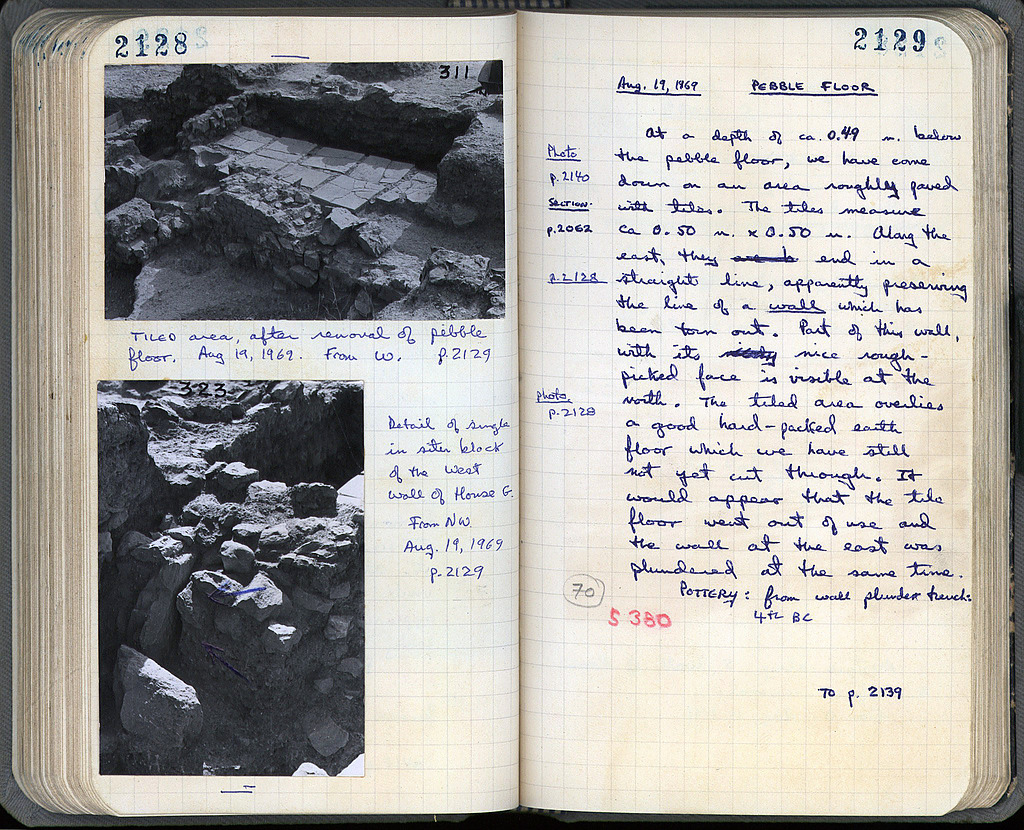 2128
311
TILED area, after removal of pebble
floor. Aug 19, 1969. From W. p.2129
323
Detail of single
in situ block
of the West
wall of House G.
From NW.
Aug. 19, 1969
p. 2129
2129
Aug. 19, 1969 PEBBLE FLOOR
At a depth of ca. 0.49 m. below
the pebble floor, we have come
down on an area roughly paved
with tiles. The tiles measure
ca 0.50 m. x 0.50 m. Along the
east, they end in a
straight line, apparently preserving
the line of a wall which has
been torn out. Part of this wall,
with its nice rough-
picked face is visible at the
north. The tiled area overlies
a good hard-packed earth
floor which we have still
not yet cut through. It
would appear that the tile
floor went out of use and
the wall at the east was
plundered at the same time.
POTTERY: from wall plunder trench:
4th BC
Photo
p.2140
SECTION.
p.2062
p.2128
Photo,
p.2128
70
S 380
To p. 2139